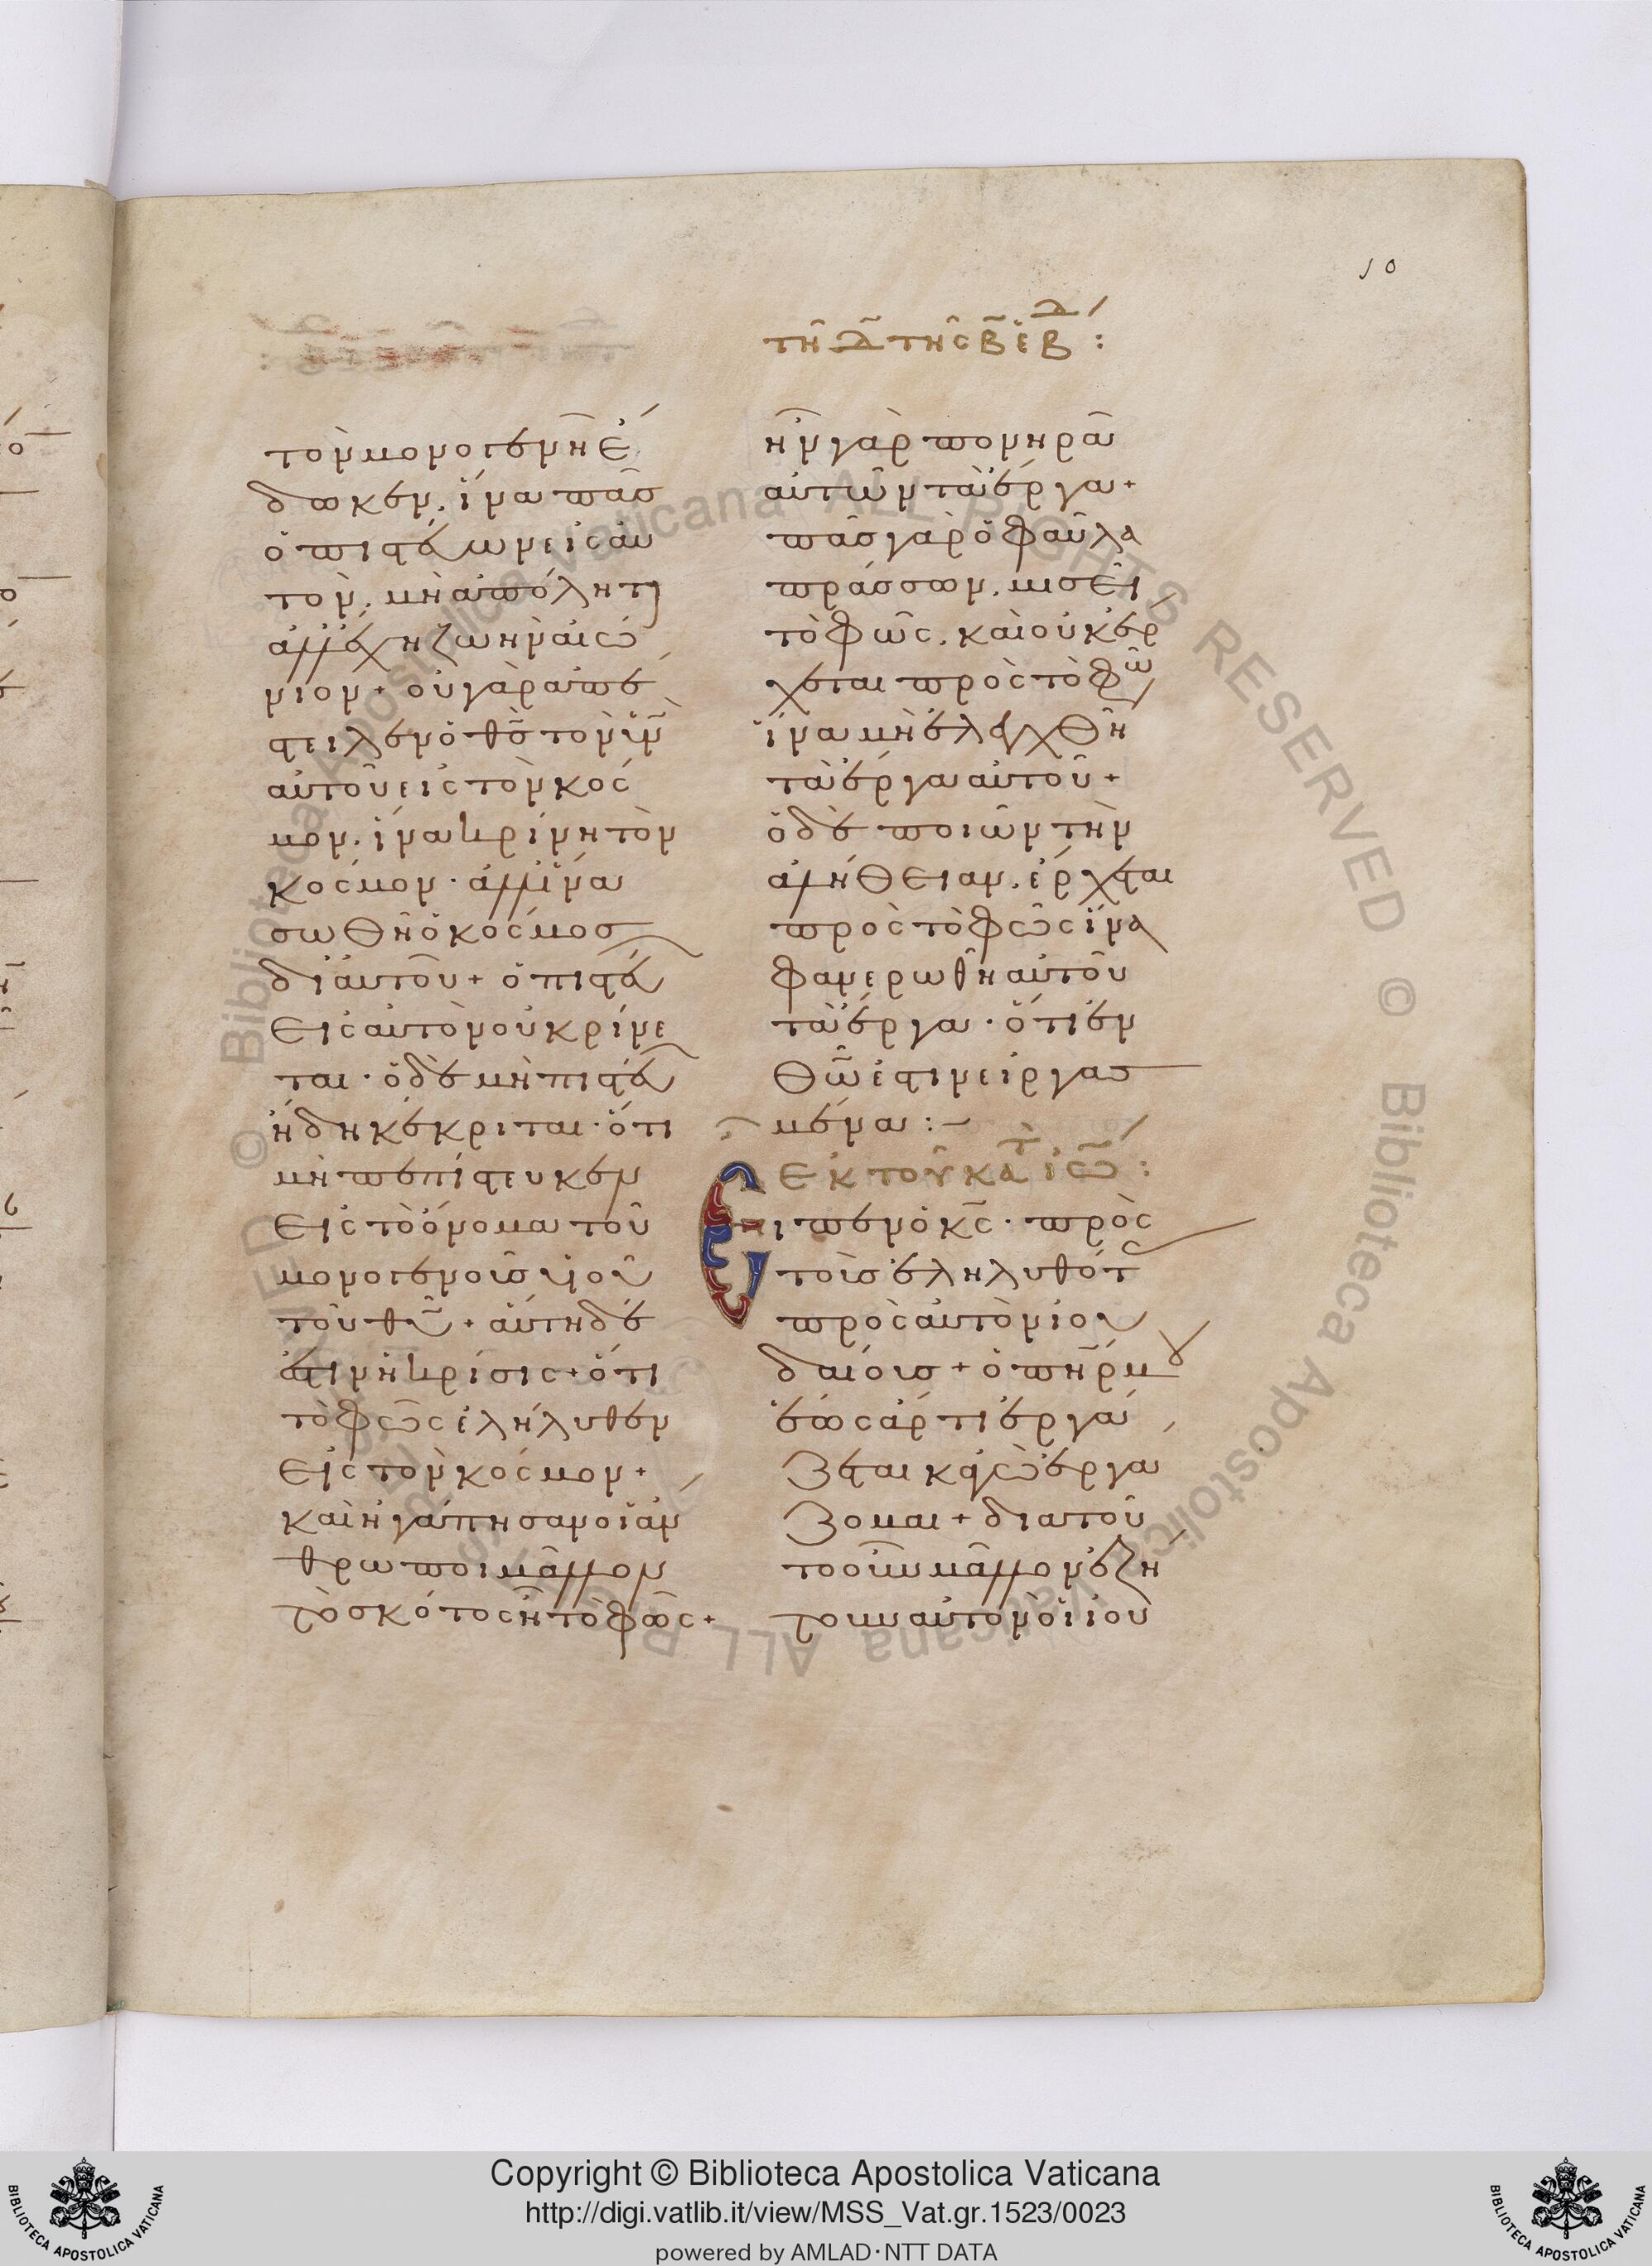 10
τῆ Δ̄ τῆς Β̄ ἑΒΔ̄:
τὸν μονογενῆ ἔ
δωκεν. ἵνα πᾶσ
ὁ πιστεύων εἰς αὐ
τὸν. μὴ ἀπόληται
ἀλλ' ἔχη ζωὴν αἰώ
νιον + οὐ γὰρ ἀπέ
στειλεν ὁ θς̄ τὸν ὑν̄
αὐτοῦ εἰς τὸν κόσ
μον. ἵνα κρίνη τὸν
κόσμον · ἀλλ' ἵνα
σωθῆ ὁ κόσμοσ
δι' αὐτοῦ + ὁ πιστεύων
εἰς αὐτὸν οὐ κρίνε
ται · ὁ δὲ μὴ πιστεύων
ἤδη κέκριται · ὅτι
μὴ πεπίστευκεν
εἰς τὸ ὄνομα τοῦ
μονογενοῦς υἱοῦ
τοῦ θῡ + αὕτη δέ
ἐστιν ἡ κρίσις + ὅτι
τὸ φῶς ἐλήλυθεν
εἰς τὸν κόσμον +
καὶ ἠγάπησαν οἱ ἄν
θρωποι μᾶλλον
τὸ σκότος ἢ τὸ φῶς +
ἦν γὰρ πονηρὰ
αὐτῶν τὰ ἔργα +
πᾶς γὰρ ὁ φαῦλα
πράσσων. μισεῖ
τὸ φῶς. καὶ οὐκ ἔρ
χεται πρὸς τὸ φῶς
ἵνα μὴ ἐλεγχθῆ
τὰ ἔργα αὐτοῦ +
ὁ δὲ ποιῶν τὴν
ἀλήθειαν. ἔρχεται
πρὸς τὸ φῶς ἵνα
φανερωθῆ αὐτοῦ
τὰ ἔργα · ὅτι ἐν
θω̄ ἐστιν εἰργασ
μένα :-
ΕΚ ΤΟΥ ΚΑΤ ΙΩ̄ :
Εἶπεν ὁ κς̄ · πρὸς
τοὺς ἐληλυθότας
πρὸς αὐτὸν ἰου
δαίους + ὁ πηρ̄ μου
ἕως ἄρτι ἐργά
ζεται κἀγὼ ἐργά
ζομαι + διὰ τοῦ
το οὖν μᾶλλον ἐζή
τουν αὐτὸν οἱ ἰου
Copyright © Biblioteca Apostolica Vaticana
http://digi.vatlib.it/view/MSS_Vat.gr.1523/0023
powered by AMLAD·NTT DATA